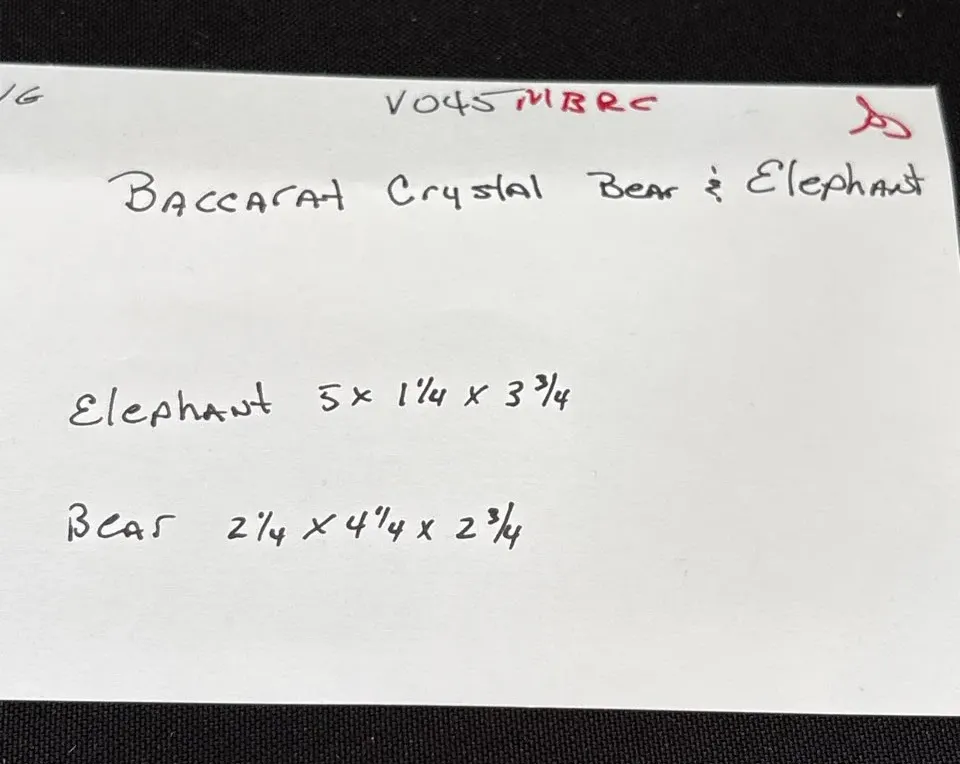 V045 MBRC
Baccarat Crystal Bear & Elephant
Elephant 5 x 1 1/4 x 3 3/4
Bear 2 1/4 x 4 1/4 x 2 3/4